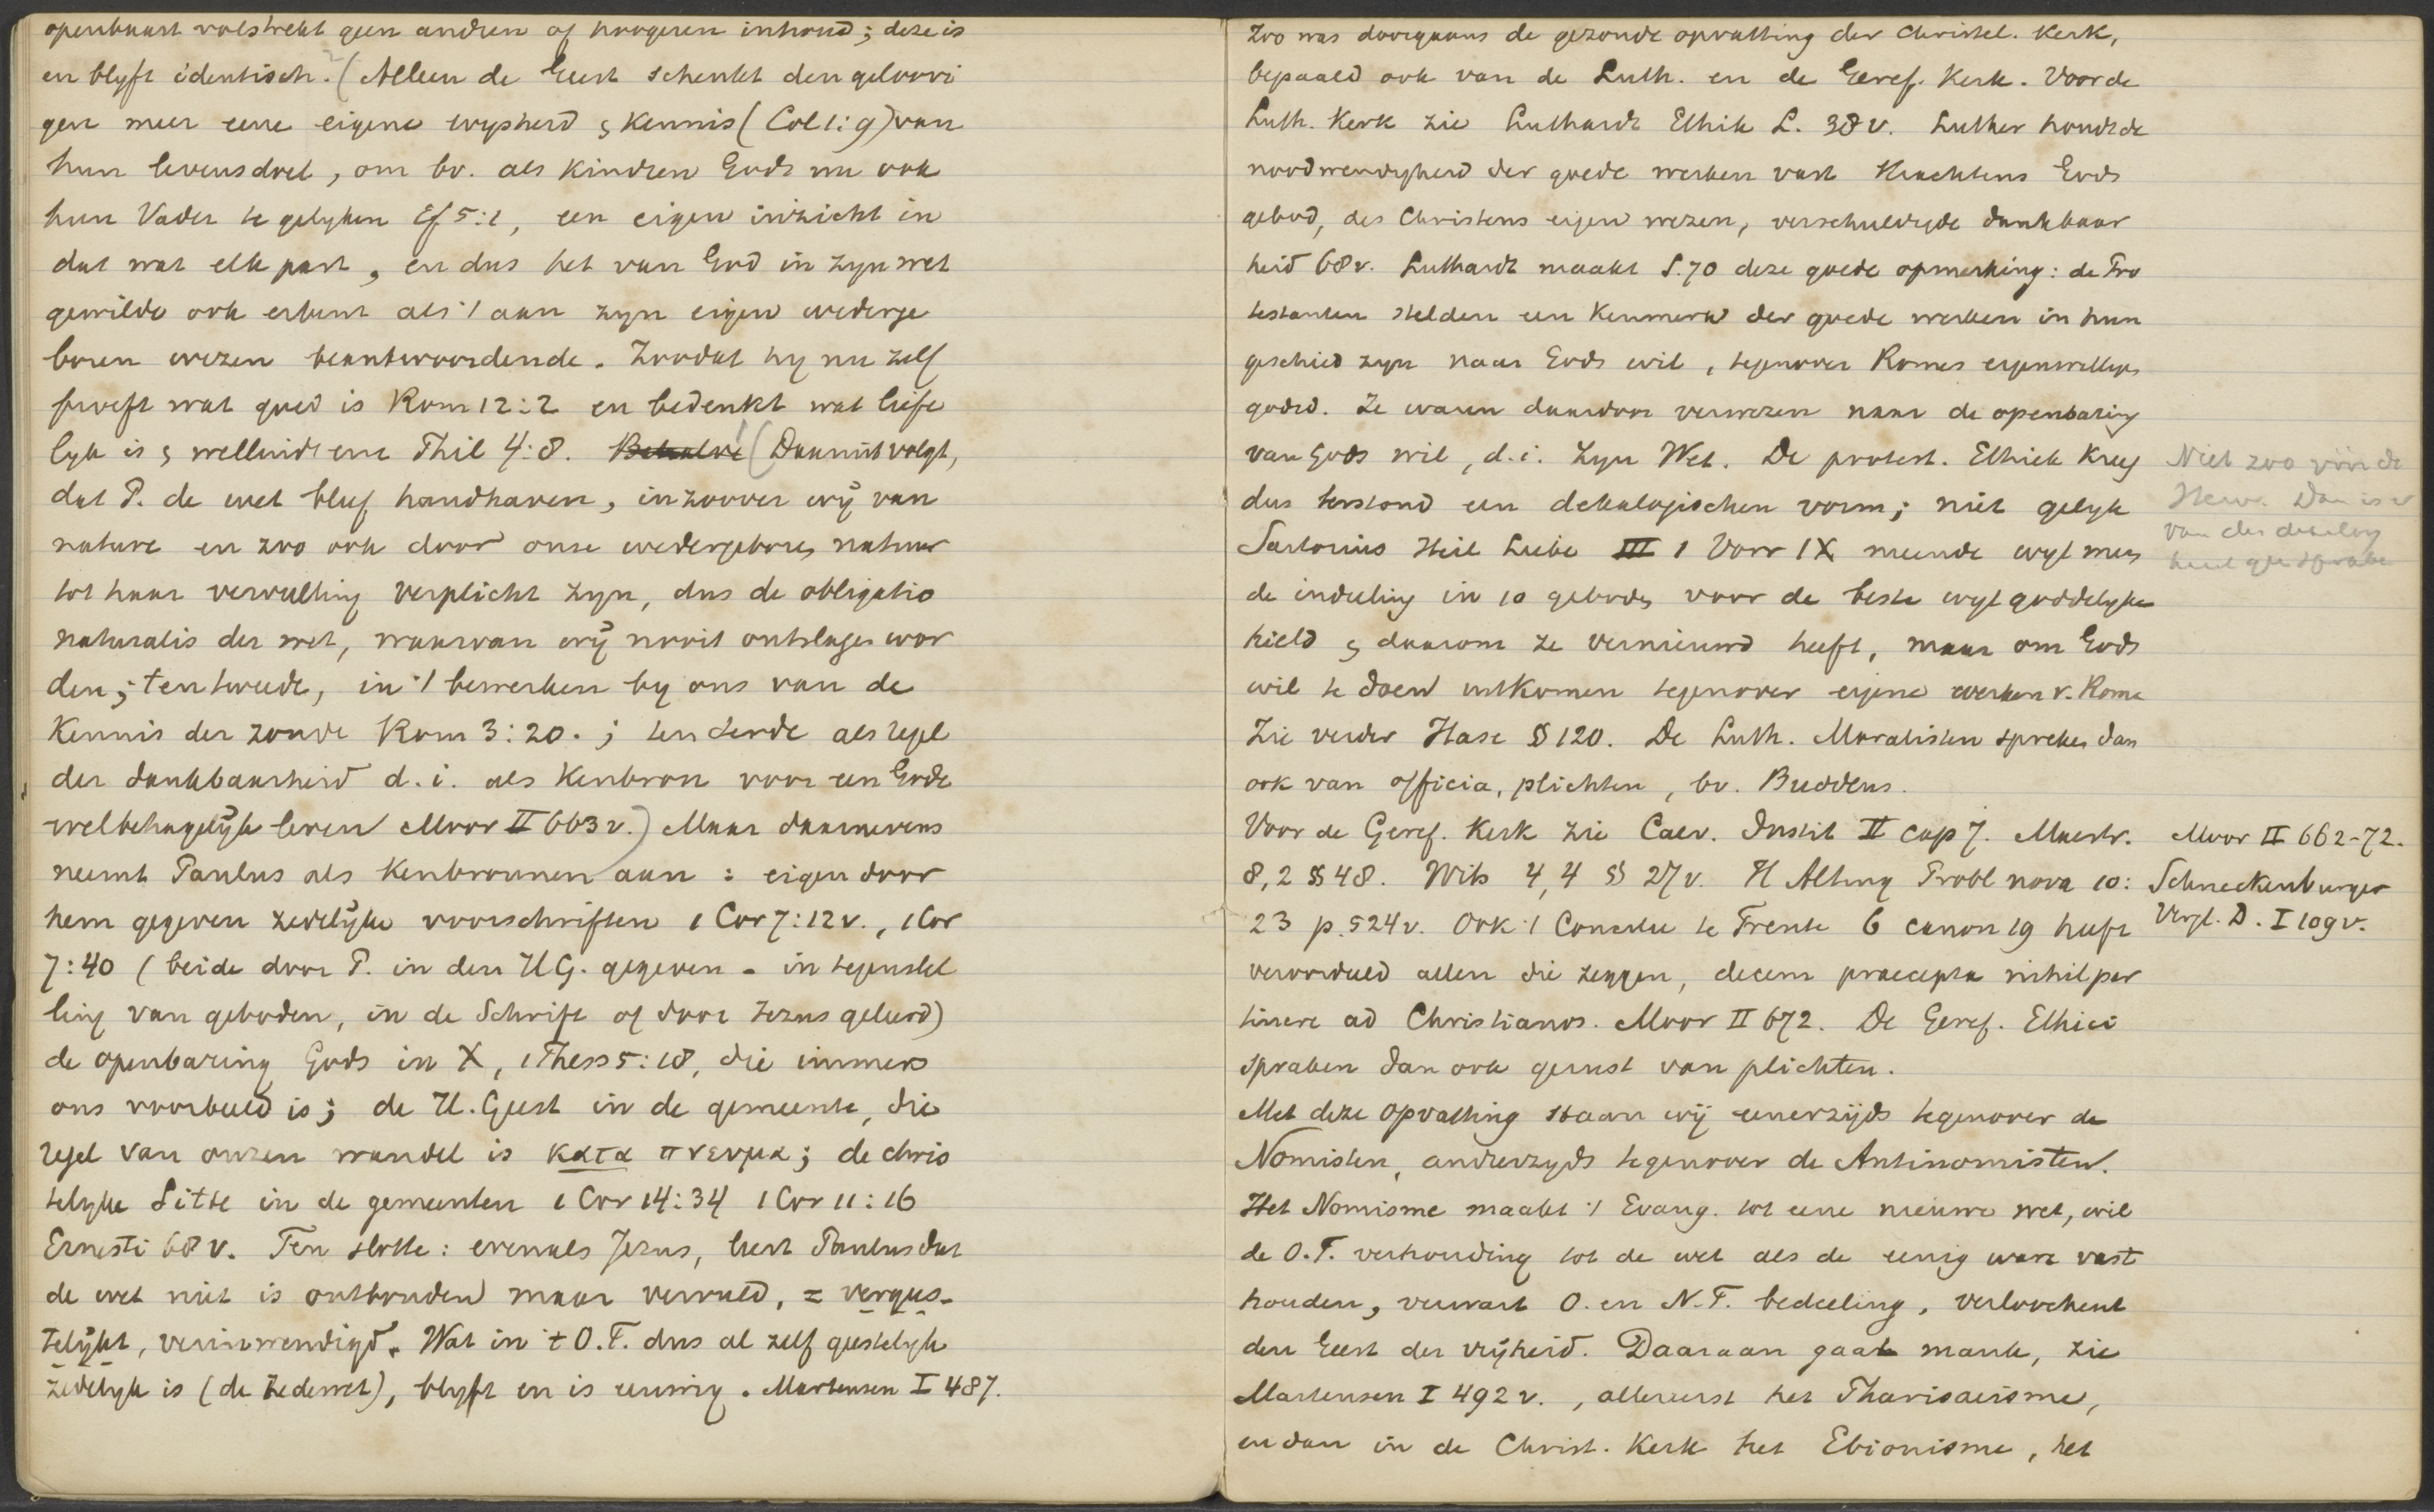 openbaart volstrekt geen andren of hoogeren inhoud; deze is
en blyft identisch. (Alleen de Geest schenkt den geloovi
gen meer eene eigene wysheid & kennis (Col 1:9) van
hun levensdoel, om bv. als kindren Gods nu ook
hun Vader te gelyken Ef 5:1, een eigen inzicht in
dat wat elk past, en dus het van God in zyn wet
gewilde ook erkent als 't aan zyn eigen wederge
boren wezen beantwoordende. Zoodat hy nu zelf
proeft wat goed is Rom 12:2 en bedenkt wat liefe
lyk is & welluidt enz Phil 4:8. Behalve (Daaruit volgt,
dat P. de wet bleef handhaven, inzoover wÿ van
nature en zoo ook door onze wedergeboren natuur
tot haar vervulling verplicht zyn, dus de obligatio
naturalis der wet, waarvan wÿ nooit ontslagen wor
den; ten tweede, in 't bewerken by ons van de
kennis der zonde Rom 3:20.; ten derde als regel
der dankbaarheid d.i. als kenbron voor een Gode
welbehagelÿk leven Moor II 663 v.) Maar daarnevens
neemt Paulus als kenbronnen aan: eigen door
hem gegeven zedelÿke voorschriften 1 Cor 7:12 v., 1 Cor
7:40 (beide door P. in den H.G. gegeven - in tegenstel
ling van geboden, in de Schrift of door Jezus geleerd)
de openbaring Gods in X, 1 Thess 5:18, die immers
ons voorbeeld is; de H. Geest in de gemeente, die
regel van onzen wandel is κατα πνευμα; de chris
telyke Sitte in de gemeenten 1 Cor 14:34 1 Cor 11:16
Ernesti 68 v. Ten slotte: evenals Jezus, leert Paulus dat
de wet niet is ontbonden maar vervuld, = vergees-
telÿkt, verinwendigd. Wat in 't O.T. dus al zelf geestelyk
zedelyk is (de zedewet), blyft en is eeuwig. Martensen I 487.
Zoo was doorgaans de gezonde opvatting der Christel. Kerk,
bepaald ook van de Luth. en de Geref. Kerk. Voor de
Luth. Kerk zie Luthardt Ethik L. 38 v. Luther houdt de
noodwendigheid der goede werken vast krachtens Gods
gebod, des Christens eigen wezen, verschuldigde dankbaar
heid 68 v. Luthardt maakt S. 70 deze goede opmerking: de Pro
testanten stelden een kenmerk der goede werken in hun
geschied zyn naar Gods wil, tegenover Romes eigenwillige
godsd. Ze waren daardoor verwezen naar de openbaring
van Gods wil, d.i. Zyn Wet. De protest. Ethiek kreeg
dus terstond een dekalogischen vorm; niet gelyk
Sartorius Heil Liebe III 1 Vorr IX meende wyl men
de indeeling in 10 geboden voor de beste wyl goddelyke
hield & daarom ze vernieuwd heeft, maar om Gods
wil te doen uitkomen tegenover eigene werken v. Rome
Zie verder Hase §120. De Luth. Moralisten spreken dan
ook van officia, plichten, bv. Buddeus.
Voor de Geref. Kerk zie Calv. Instit II cap 7. Mastr.
8,2 §48. Wits 4,4 § 27 v. H Alting Probl nova 10:
23 p. 524 v. Ook 't Concilie te Trente 6 canon 19 heeft
veroordeeld allen die zeggen, decem praecepta nihil per
tinere ad Christianos. Moor II 672. De Geref. Ethici
spraken dan ook gerust van plichten.
Met deze opvatting staan wÿ eenerzÿds tegenover de
Nomisten, anderzyds tegenover de Antinomisten.
Het Nomisme maakt 't Evang. tot eene nieuwe wet, wil
de O.T. verhouding tot de wet als de eenig ware vast
houden, verwart O. en N.T. bedeeling, verloochent
den Geest der vrÿheid. Daaraan gaat mank, zie
Martensen I 492 v., allereerst het Pharisaeisme,
en dan in de Christ. Kerk het Ebionisme, het
Niet zoo vóór de
Herv. Dan is er
van den dekaloog
Moor II 662-72.
Schneckenburger
Vergl. D. I 109 v.